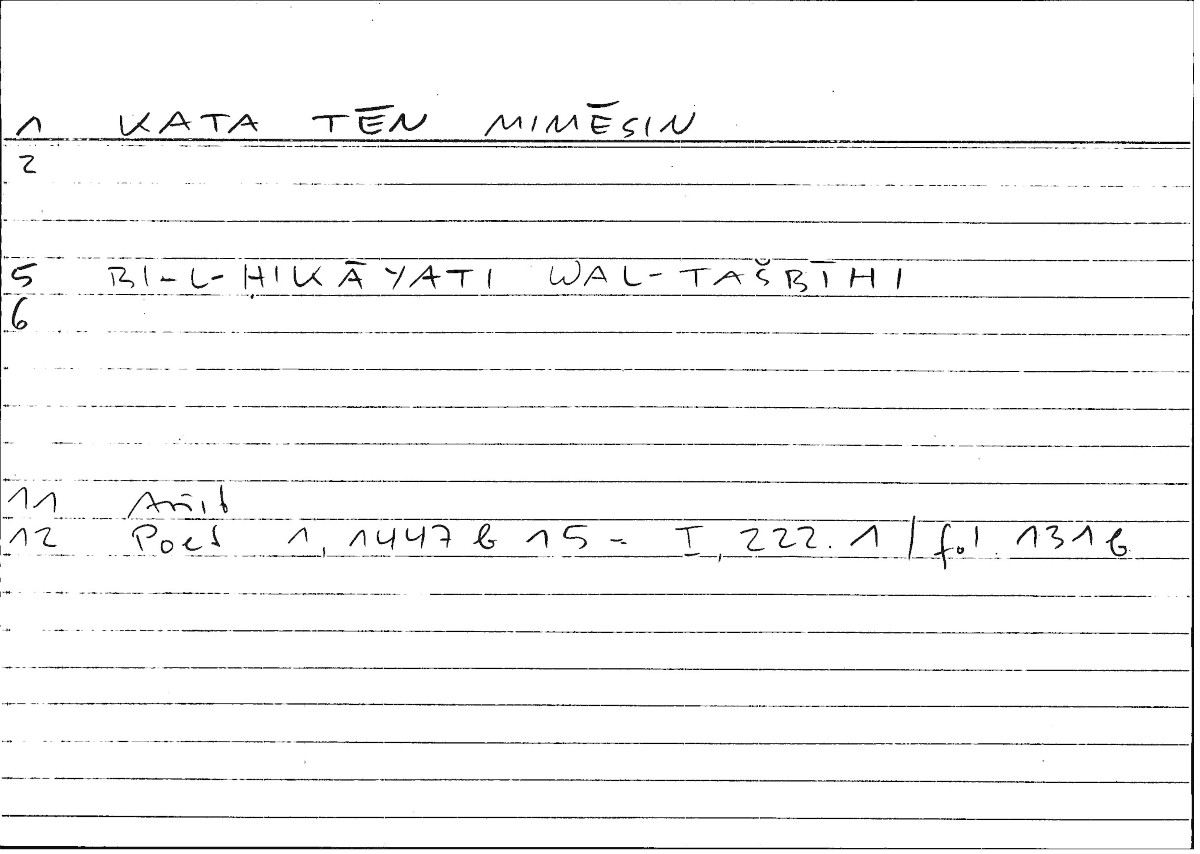 1 KATA TĒN MIMĒSIN
2
5 BI-L-ḤIKĀYATI WAL-TAŠBĪHI
6
11 Arist
12 Poet 1, 1447 b 15 = I, 222.1 / fol. 131b